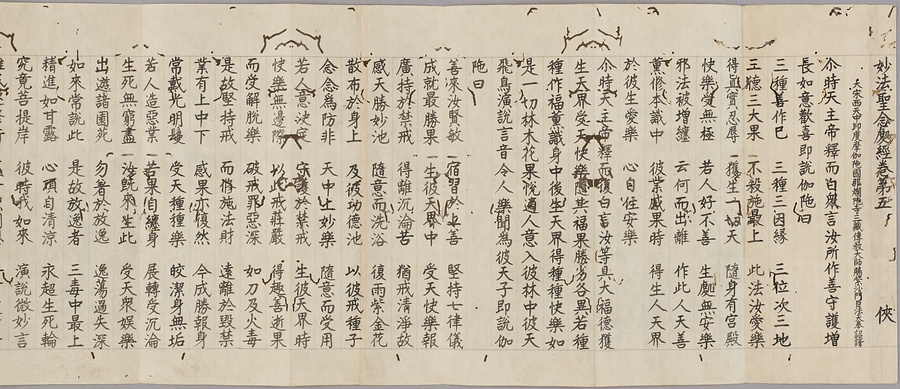 妙法聖念處經卷第五 俠
大宋西天中印度摩伽陀國那爛陀寺三藏傳教大師賜紫沙門臣法天奉 詔譯
尒時天主帝釋而白衆言汝所作善守護增
長如意歡喜即說伽陁曰
三種善作已 三種三因緣 三位次三地
三德三大果 不殺施最上 此法汝愛樂
得真實忍辱 獲生一切天 隨身有宮殿
快樂受無極 若人好不善 生處無安樂
邪法被增纏 云何而出離 作此人天善
薰修本識中 彼業感果時 得生人天界
於彼生愛樂 心自住安樂
尒時天主帝釋而復白言汝等具大福德獲
生天界受天快樂隨其福果勝劣各異若種
種作福薰識身中後生天界得果種種快樂如
是一切林木花果悅適人意入彼林中彼天
飛鳥演說言音令人樂聞為彼天子即說伽
陁曰
善逝汝賢敏 宿習於上善 堅持七律儀
成就最勝果 一生彼天界中 受天快樂報
廣持於禁戒 得離沉淪苦 猶戒清淨故
感天勝妙池 隨意而洗浴 復雨紫金花
散布於身上 及彼功德池 以彼戒種子
念念為防非 天中上妙樂 隨意而受用
若人意決定 守護於禁戒 生彼天界時
快樂無邊際 以此戒莊嚴 得趣善逝果
而受解脫樂 破戒罪惡深 如刀及火毒
是故堅持戒 而修施法財 遠離於毀禁
業有上中下 感果亦復然 今成勝報身
常戴光明鬘 受天種種樂 皎潔身無垢
若人造惡業 若果自纏身 展轉受沉淪
生死無窮盡 汝旣來生此 受天衆娛樂
出遊諸園苑 勿著於放逸 逸蕩過失深
如來常說此 是故放逸者 三毒中最上
精進如甘露 心頂自清涼 永超生死輪
究竟菩提岸 彼時戒如來 演說微妙言